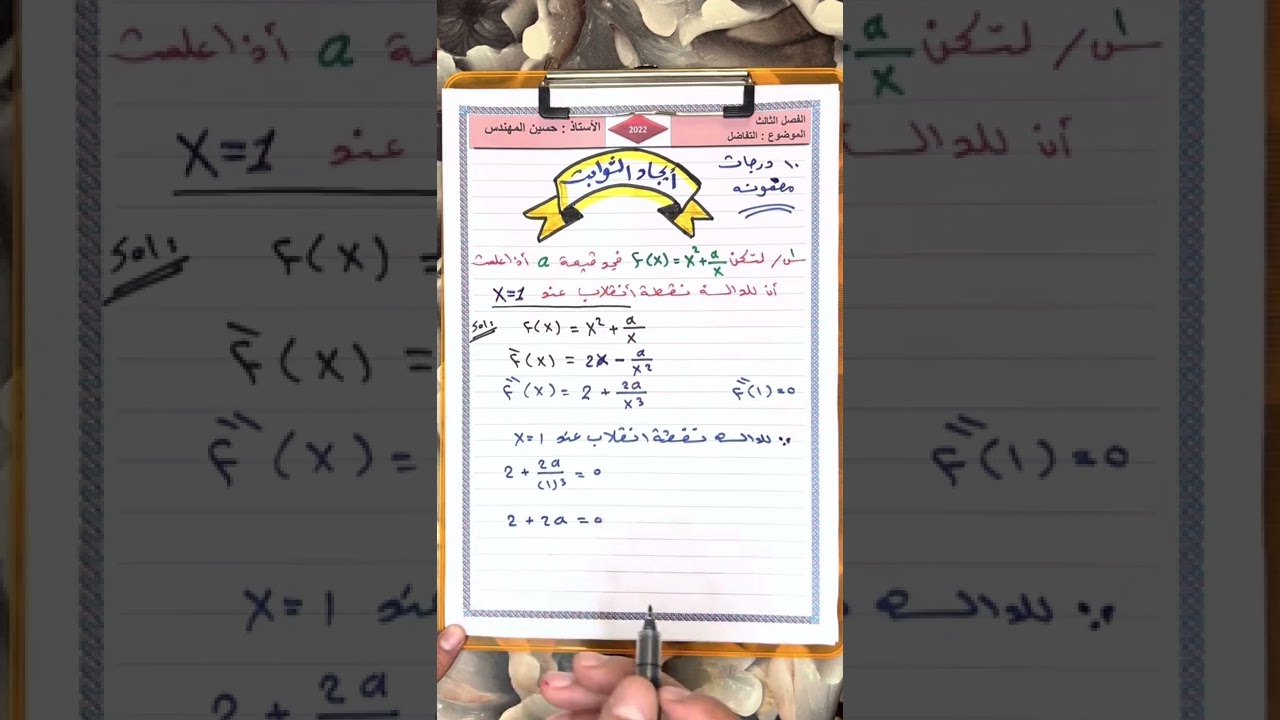 الفصل الثالث
الموضوع : التفاضل
2022
الأستاذ : حسين المهندس
١٠ درجات
مضمونه
أيجاد الثوابت
س/ لتكن f(x) = x² + a/x فجد قيمة a أذا علمت
أن للدالة نقطة أنقلاب عند x=1
Sol:
f(x) = x² + a/x
f̄(x) = 2x - a/x²
f̿(x) = 2 + 2a/x³
f̿(1) = 0
∵ للدالة نقطة انقلاب عند x=1
2 + 2a/(1)³ = 0
2 + 2a = 0